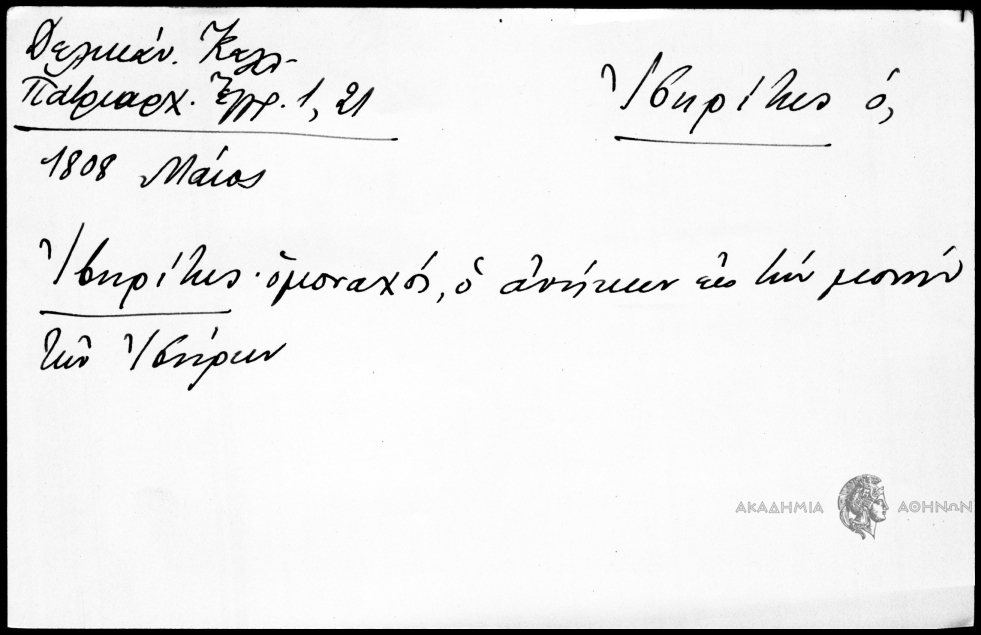 Δελικάν. Καλλ.
Πατριαρχ. Ἔγγρ. 1, 21
Ἰβηρίτης ὁ,
1808 Μάιος
Ἰβηρίτης · ὁ μοναχός, ὁ ἀνήκων εἰς τὴν μονὴν
τῶν Ἰβήρων
ΑΚΑΔΗΜΙΑ ΑΘΗΝΩΝ